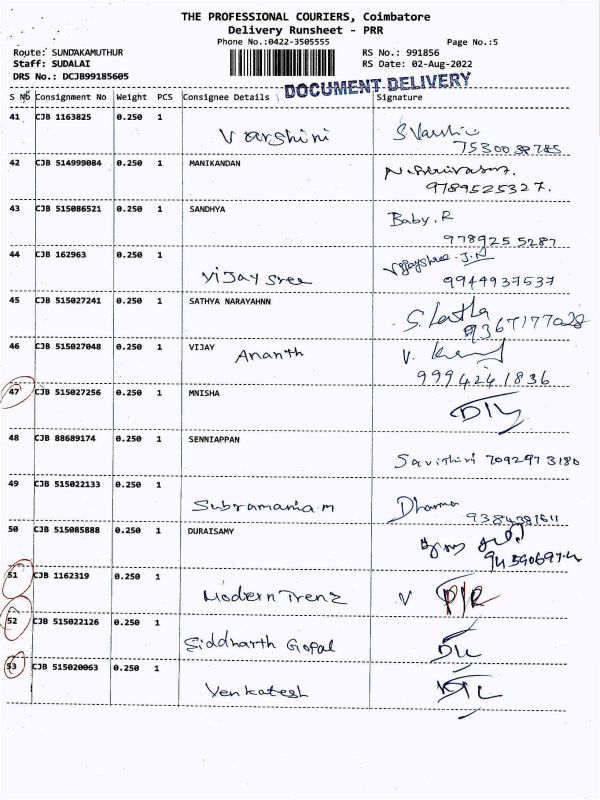 THE PROFESSIONAL COURIERS, Coimbatore
Delivery Runsheet - PRR
Phone No.:0422-3505555 Page No.:5
Route: SUNDAKAMUTHUR RS No.: 991856
Staff: SUDALAI RS Date: 02-Aug-2022
DRS No.: DCJB99185605
DOCUMENT DELIVERY
S No Consignment No Weight PCS Consignee Details Signature
41 CJB 1163825 0.250 1
Varshini S Varshini
7530038785
42 CJB 514999084 0.250 1 MANIKANDAN
9789525327.
43 CJB 515086521 0.250 1 SANDHYA Baby. R
9789255287
44 CJB 162963 0.250 1 Vijayshree. J.N
Vijay Sree 9944937537
45 CJB 515027241 0.250 1 SATHYA NARAYAHNN
S. Latha
9367177028
46 CJB 515027048 0.250 1 VIJAY
Ananth V.
9994241836
47 CJB 515027256 0.250 1 MNISHA
D/L
48 CJB 88689174 0.250 1 SENNIAPPAN
Savithiri 7092973180
49 CJB 515022133 0.250 1
Subramaniam Dharma
9384381611
50 CJB 515085888 0.250 1 DURAISAMY
51 CJB 1162319 0.250 1
Modern Trenz V P/R
52 CJB 515022126 0.250 1
Siddharth Gopal D/L
53 CJB 515020063 0.250 1
Venkatesh D/L